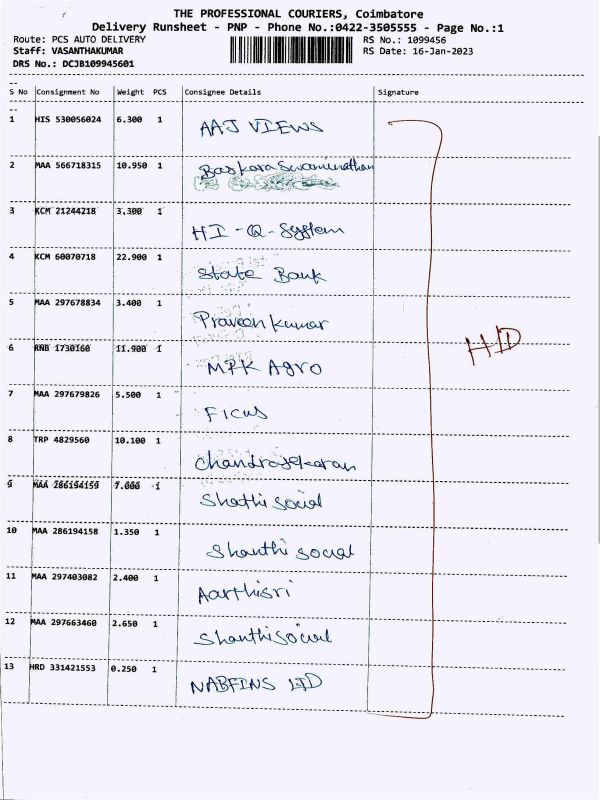 THE PROFESSIONAL COURIERS, Coimbatore
Delivery Runsheet - PNP - Phone No.:0422-3505555 - Page No.:1
Route: PCS AUTO DELIVERY
RS No.: 1099456
Staff: VASANTHAKUMAR
RS Date: 16-Jan-2023
DRS No.: DCJB109945601
S No Consignment No Weight PCS Consignee Details Signature
1 HIS 530056024 6.300 1 AAJ VIEWS
2 MAA 566718315 10.950 1 Baskaraswaminathan
3 KCM 21244218 3.300 1 HI-Q-System
4 KCM 60070718 22.900 1 State Bank
5 MAA 297678834 3.400 1 Praveen kumar
6 RNB 1730160 11.900 1 MPK Agro
HD
7 MAA 297679826 5.500 1 Ficus
8 TRP 4829560 10.100 1 Chandrasekaran
9 MAA 286194159 7.000 1 Shathi social
10 MAA 286194158 1.350 1 Shanthi social
11 MAA 297403082 2.400 1 Aarthisri
12 MAA 297663460 2.650 1 Shanthi social
13 HRD 331421553 0.250 1 NABFINS LTD